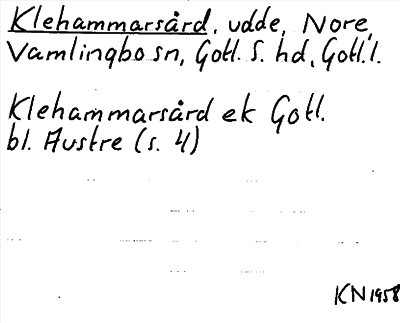 Klehammarsård, udde, Nore,
Vamlingbo sn, Gotl. S. hd, Gotl. l.
Klehammarsård ek Gotl.
bl. Austre (s. 4)
KN 1958